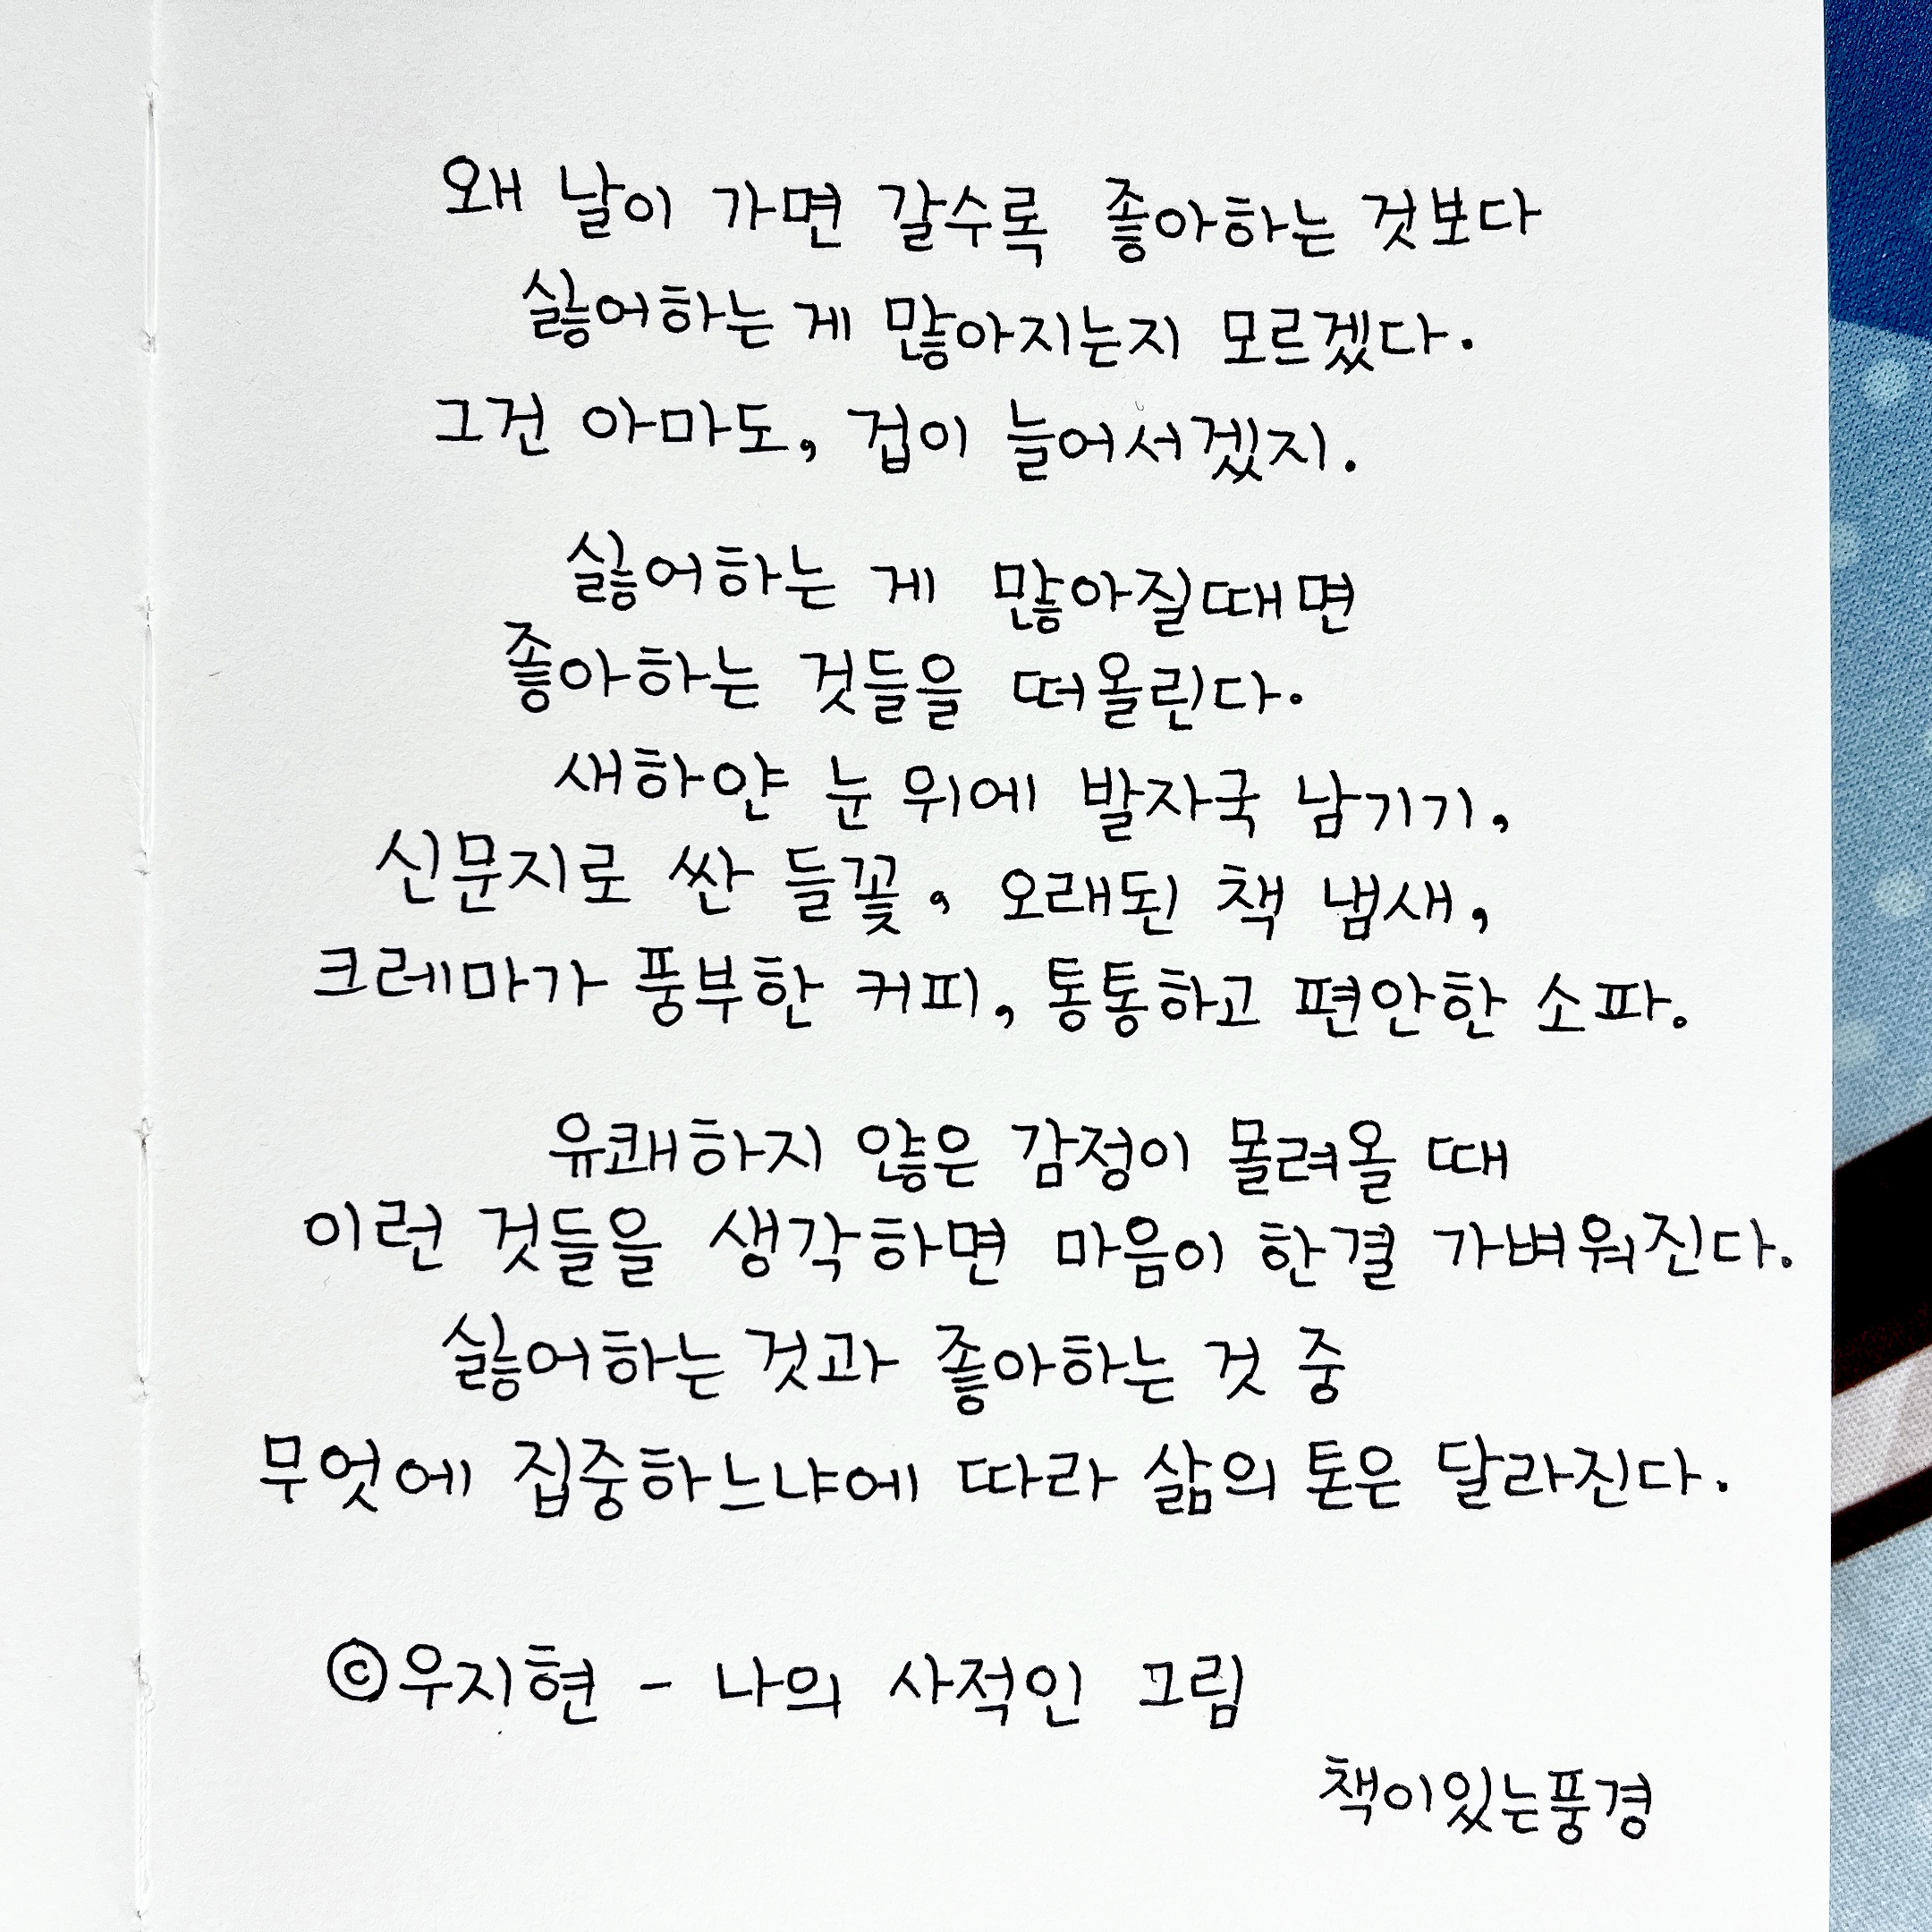 왜 날이 가면 갈수록 좋아하는 것보다
싫어하는 게 많아지는지 모르겠다.
그건 아마도, 겁이 늘어서겠지.
싫어하는 게 많아질때면
좋아하는 것들을 떠올린다.
새하얀 눈 위에 발자국 남기기,
신문지로 싼 들꽃, 오래된 책 냄새,
크레마가 풍부한 커피, 통통하고 편안한 소파.
유쾌하지 않은 감정이 몰려올 때
이런 것들을 생각하면 마음이 한결 가벼워진다.
싫어하는 것과 좋아하는 것 중
무엇에 집중하느냐에 따라 삶의 톤은 달라진다.
©우지현 - 나의 사적인 그림
책이있는풍경